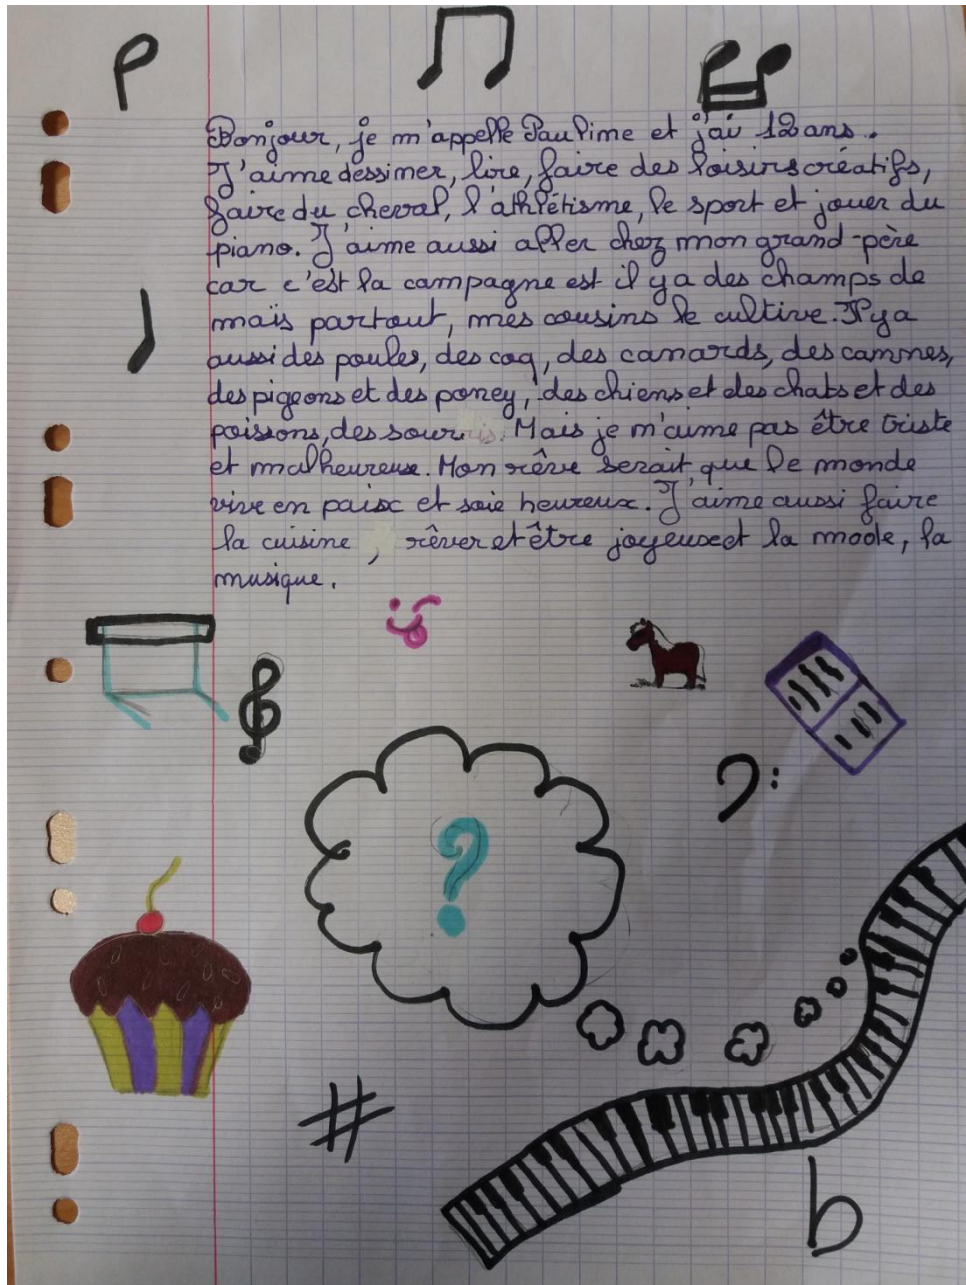 Bonjour, je m'appelle Pauline et j'ai 12 ans.
J'aime dessiner, lire, faire des loisirs créatifs,
faire du cheval, l'athlétisme, le sport et jouer du
piano. J'aime aussi aller chez mon grand-père
car c'est la campagne est il y a des champs de
maïs partout, mes cousins le cultive. Il y a
aussi des poules, des coq, des canards, des cannes,
des pigeons et des poney, des chiens et des chats et des
poissons, des souris. Mais je n'aime pas être triste
et malheureuse. Mon rêve serait que le monde
vive en paix et soie heureux. J'aime aussi faire
la cuisine, rêver et être joyeuse et la mode, la
musique.
?